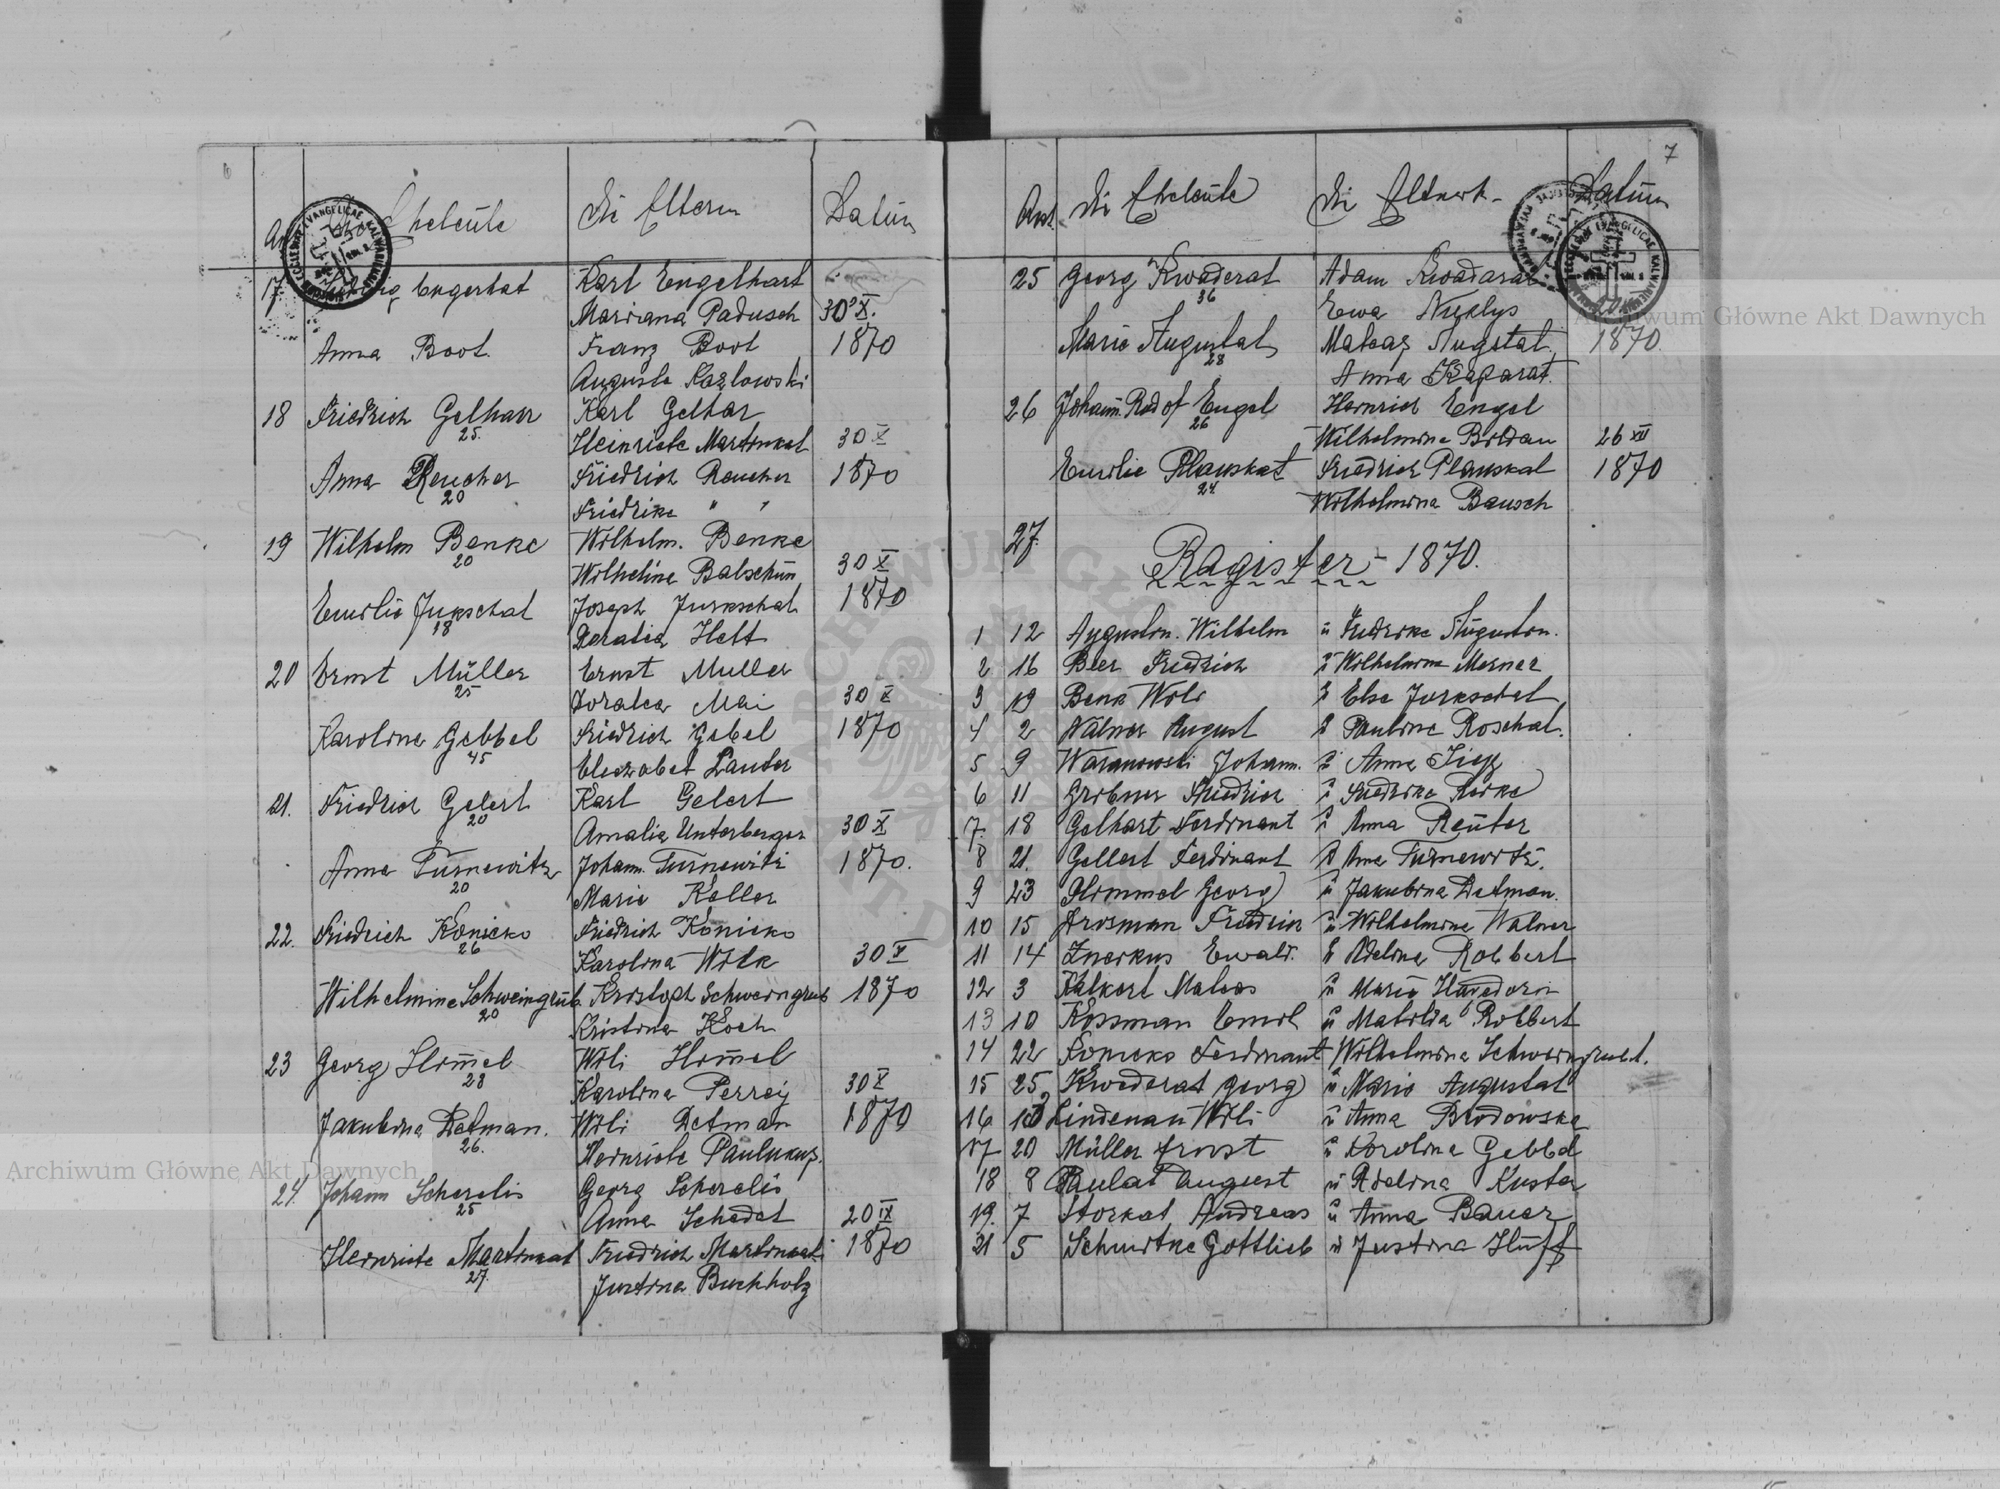 6
Eheleute
die Eltern
Datum
17 Engerhat
Karl Engelhart
Mariana Padusch 30 X.
Anna Boot. Franz Boot 1870
Auguste Kazlowski
18 Friedrich Gelharr Karl Gelhar
25. Heinriete Martinkat 30 X
Anna Reucher Friedrich Reucher 1870
20 Friedrike " "
19 Wilhelm Benke Wilhelm. Benke
20 Wilhelina Balschun 30 X
Emilie Jukschat Joseph Jurkschat 1870
18 Doratia Helt
20 Ernst Müller Ernst Muller
25 Doratea Mai 30 X
Karolina Gebbel Friedrich Gebel 1870
45 Eliezabet Lauter
21. Friedrich Gelert Karl Gelert
20 Amalia Unterberger 30 X
Anna Turnewitz Johann Turnewitz 1870.
20 Marie Keller
22. Friedrich Konicko Friedrich Konicko
26 Karolina Wilk 30 X
Wilhelmine Schweingrub Kristoph Schweingrub 1870
20 Kristina Koch
23 Georg Himmel Wili Himmel
28 Karolina Perrey 30 X
Jakubina Detman. Wili Detman 1870
26. Heinriete Paulukus.
24 Johann Scherelis Georg Scherelis
25 Anna Schedat 20 IX
Heinriete Martinkat Friedrich Martinkat 1870
27. Justina Buchholz
7
die Eheleute die Eltern Datum
25 Georg Kwaderat Adam Kwadarat
36 Ewa Niklys
Marie Augustat Mateas Augstat. 1870.
28 Anna Kaparat.
26 Johann Rodof Engel Heinrich Engel
26 Wilhelmina Boldau 26 XII
Emilie Plauskat Friedrich Plauskat 1870
24. Wilhelmina Bausch
27.
Ragister 1870.
1 12 Auguston. Wilhelm u Fridrike Auguston.
2 16 Beer Friedrich u Wilhelmina Mesner
3 19 Benk Wili u Else Jurkschat
4 2 Walner August u Paulina Roschat.
5 9 Waranowski Johann. u Anna
6 11 Gribner Friedrich u Friedrike
7. 18 Gelhart Ferdinant u Anna Reuter
8 21. Gellert Ferdinant u Anna Turnewitz.
9 23 Himmel Georg u Jakubina Detman.
10 15 Hrosman Friedrich u Wilhelmina Walner
11 14 Inerkus Ewald. u Adelina Robbert
12 3 Kalkert Mateas u Marie
13 10 Kossman Emil u Matilda Robbert
14 22 Konicko Ferdinant Wilhelmina Schweingrubt.
15 25 Kwederat Georg u Marie Augustat
16 Lindenau Wili u Anna Brodowska
17 20 Müller Ernst u Karolina Gebbel
18 8 Paulat August u Adelina Kuster
19. 7 Storkat Andreas u Anna Bauer
21 5 Schmitke Gottlieb u Justina Huff
Archiwum Główne Akt Dawnych
Archiwum Główne Akt Dawnych